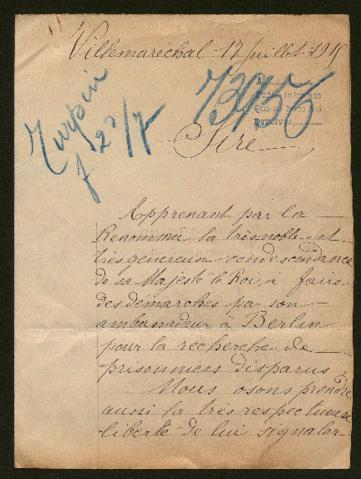 Villemaréchal 17 juillet 1915
Turpin
73956
f 23/7
Devolver
Sire
Apprenant par la
Renommée la très noble et
très généreuse condescendance
de sa Majesté le Roi, a faire
des démarches par son
ambassadeur à Berlin
pour la recherche de
prisonniers disparus
Nous osons prendre
aussi la très respectueuse
liberté de lui signaler